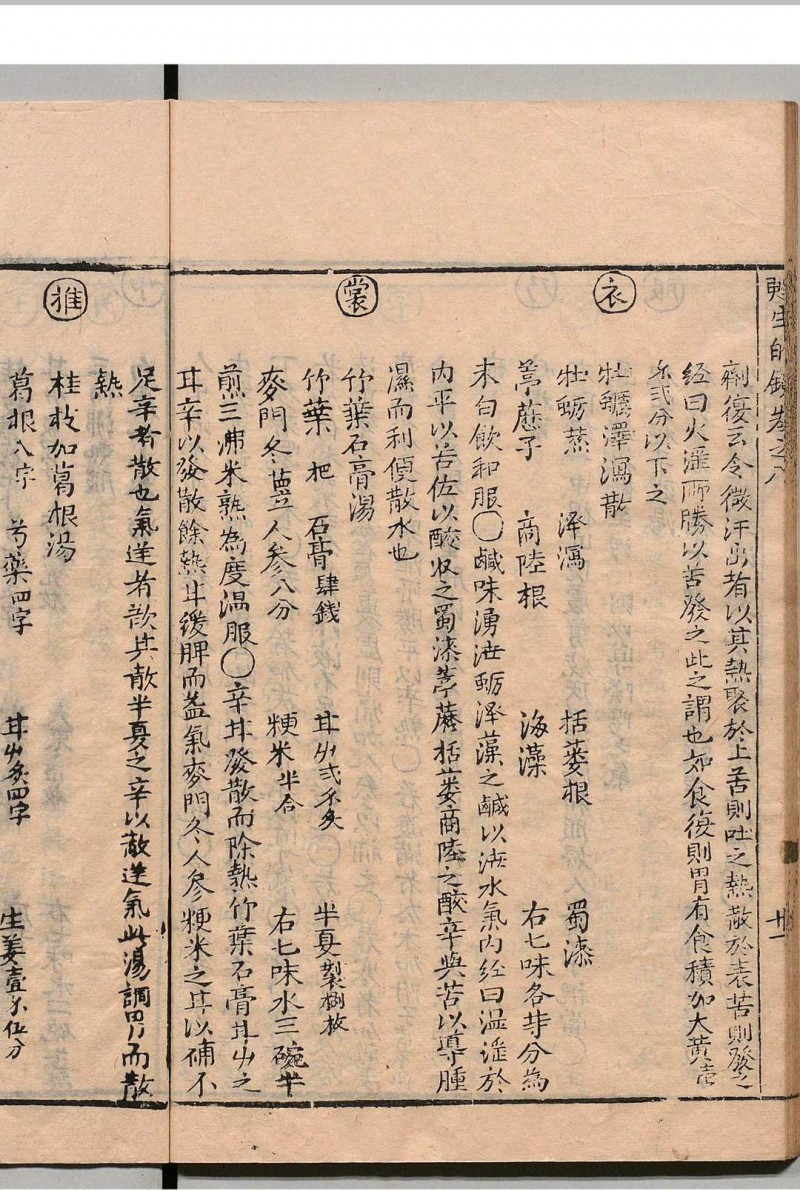 甦生的鏡卷之八
廿一
劑復云令微汗出者以其熱聚於上苦則吐之熱散於表苦則發之
経曰火滛所勝以苦發之此之謂也如食復則胃有食積加大黄壱
弍分以下之
衣
牡蠣澤瀉散
牡蛎蒸 泽瀉 括蒌根 蜀漆
葶藶子 商陸根 海藻 右七味各等分為
末白飲和服〇鹹味湧泄蛎泽藻之鹹以泄水氣内経曰温滛於
内平以苦佐以酸収之蜀漆葶藶括蒌商陸之酸辛與苦以導腫
濕而利便散水也
裳
竹葉石膏湯
竹葉一把 石膏肆錢 甘艸弍 炙 半夏製 枚
麥門冬 人参八分 粳米半合 右七味水三碗半
煎三沸米熟為度温服〇辛甘發散而除熱竹葉石膏甘艸之
甘辛以發散餘熱甘缓脾而益氣麥門冬人參粳米之甘以補不
足辛者散也氣逆者欲其散半夏之辛以散逆氣此湯調胃而散
熱
推
桂枝加葛根湯
葛根八字 芍藥四字 甘艸炙四字 生姜壹 伍分